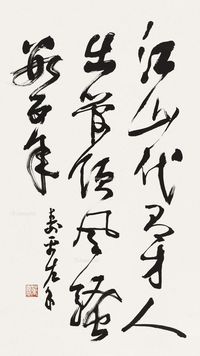 江山代有才人
出管领风骚
数百年